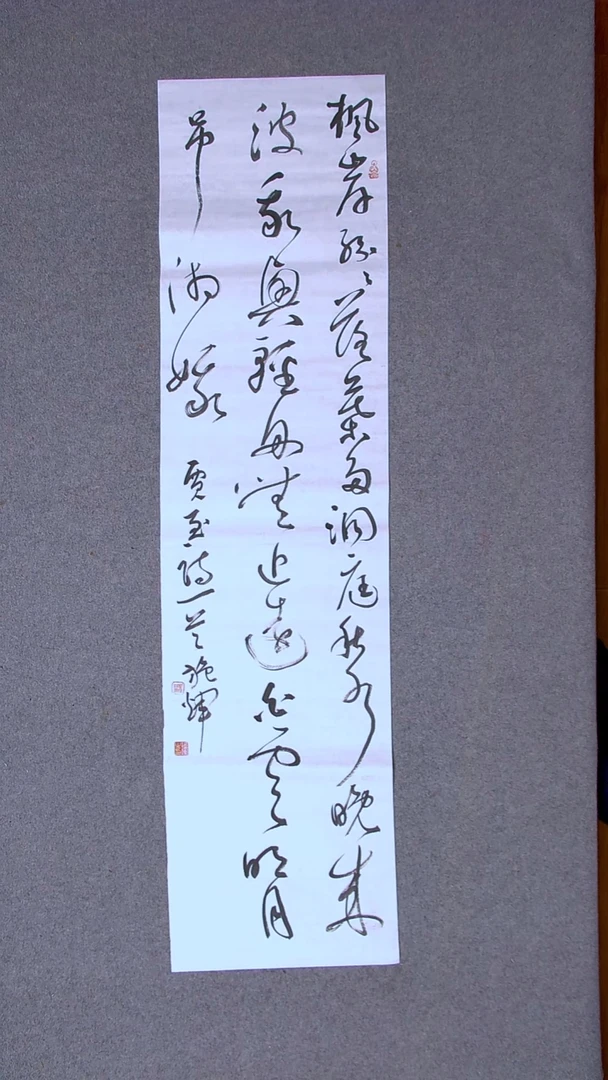 楓岸紛々落葉多洞庭秋水晚來
波乘興輕舟無近遠白雲明月
吊湘娥 賈至詩一首 施輝